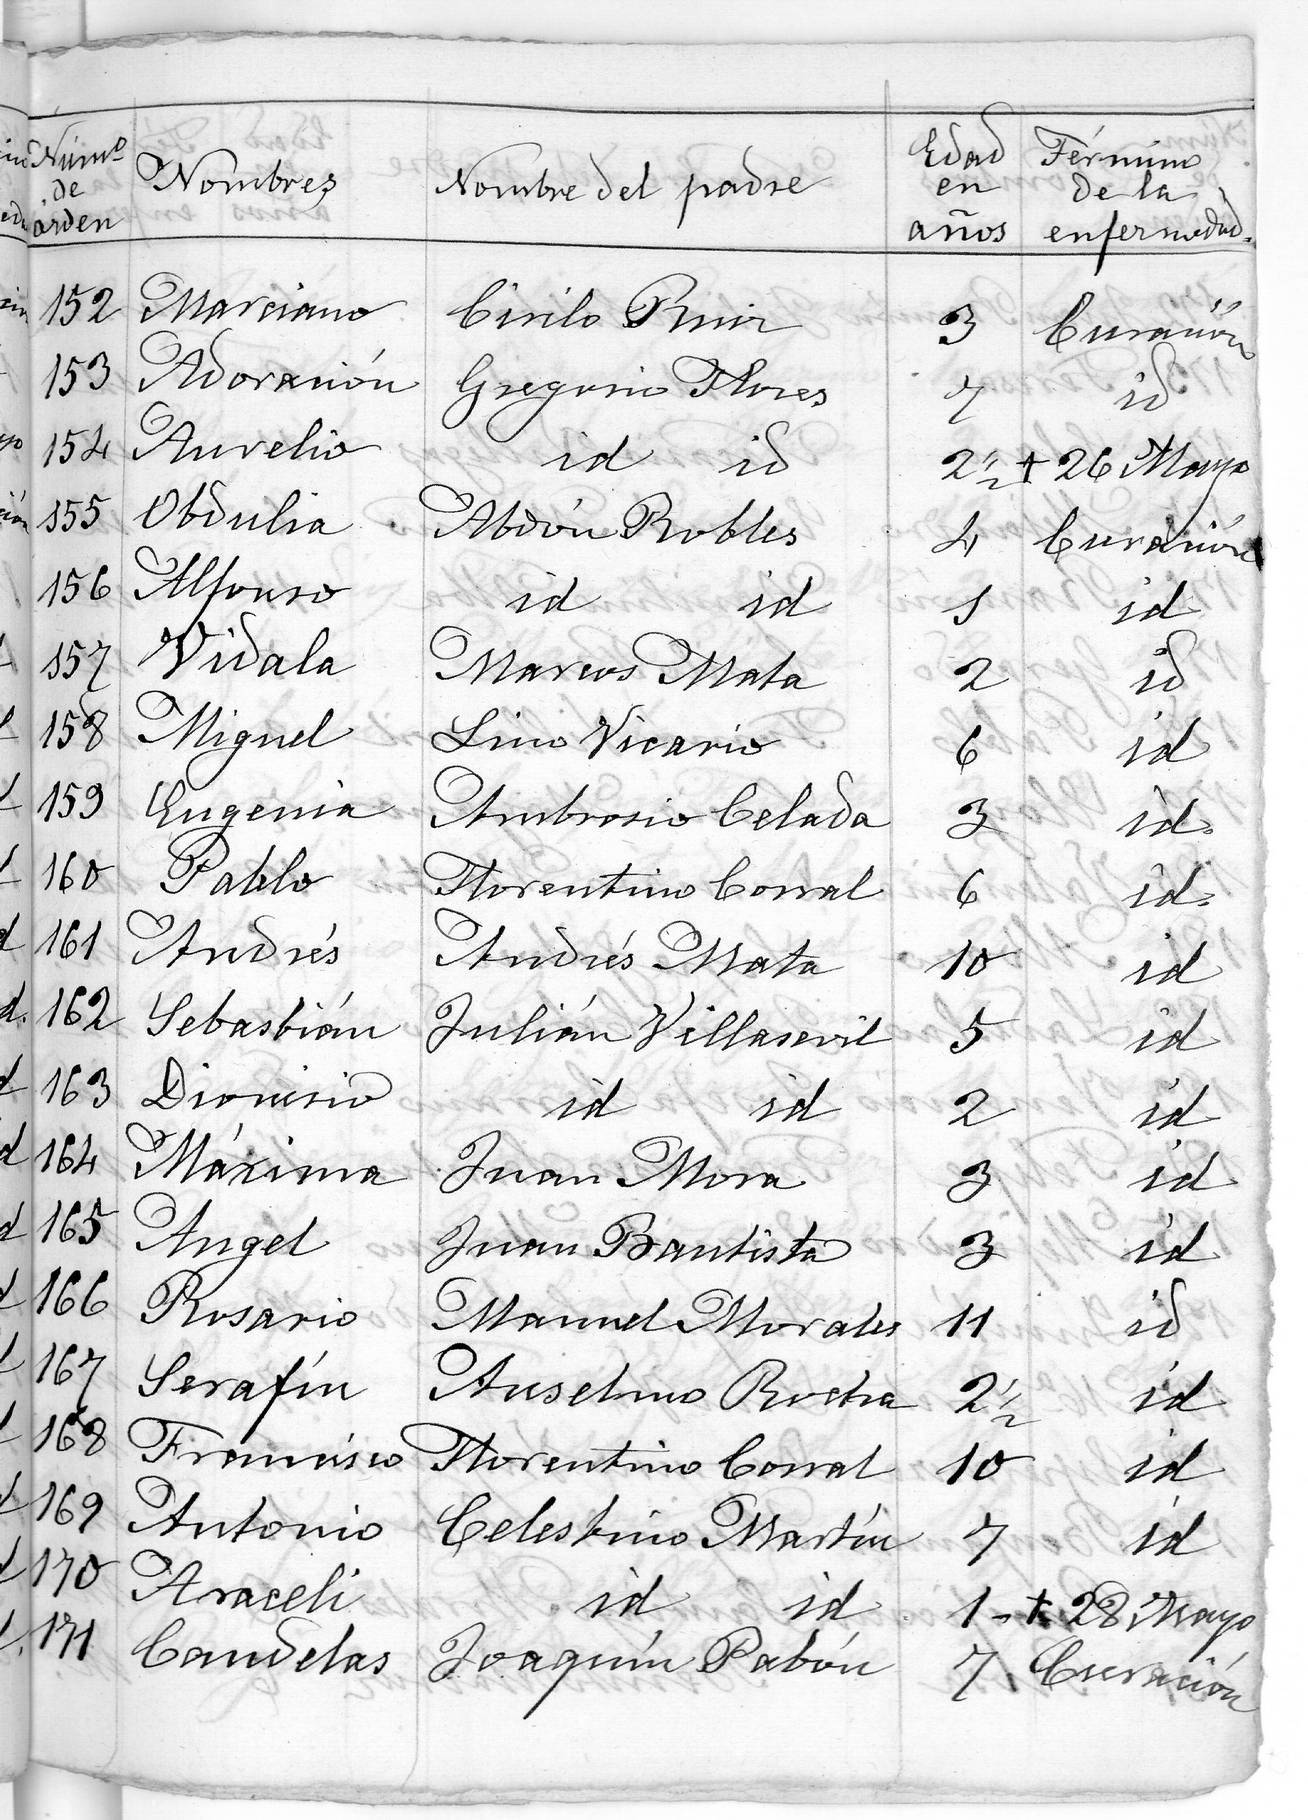 Núm.º de órden Nombres Nombre del padre Edad en años Término de la enfermedad.
152 Marciano Cirilo Ruiz 3 Curación
153 Adoración Gregorio Flores 7 id
154 Aurelio id id 2 1/2 + 26 Mayo
155 Obdulia Abdón Robles 4 Curación
156 Alfonso id id 1 id
157 Vidala Marcos Mata 2 id
158 Miguel Lino Vicario 6 id
159 Eugenia Ambrosio Celada 3 id.
160 Pablo Florentino Corral 6 id.
161 Andrés Andrés Mata 10 id
162 Sebastián Julián Villasevil 5 id
163 Dionisio id id 2 id
164 Máxima Juan Mora 3 id
165 Angel Juan Bautista 3 id
166 Rosario Manuel Morales 11 id
167 Serafín Anselmo 2 1/2 id
168 Francisco Florentino Corral 10 id
169 Antonio Celestino Martín 7 id
170 Araceli id id 1 - + 28 Mayo
171 Candelas Joaquín Pabón 7 Curación